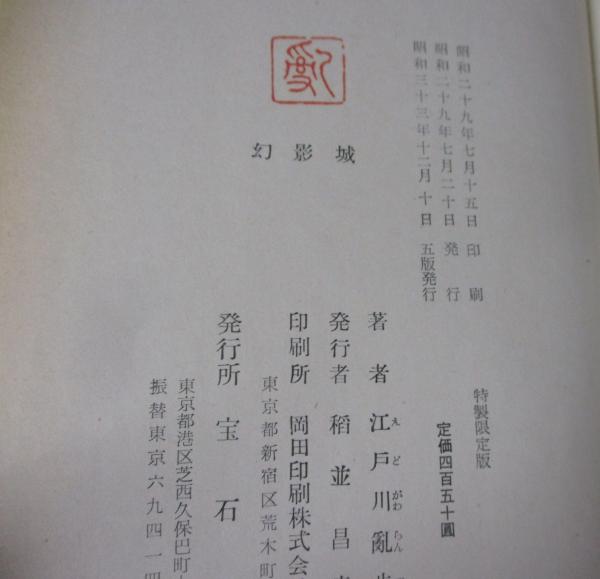 昭和二十九年七月十五日 印刷
昭和二十九年七月二十日 発行
昭和三十三年十二月十日 五版発行
亂
幻影城
特製限定版
定価四百五十圓
著者 江戸川亂
えどがわらん
発行者 稲並昌
印刷所 岡田印刷株式会
東京都新宿区荒木町
発行所 宝石
東京都港区芝西久保巴町
振替東京六九四一四